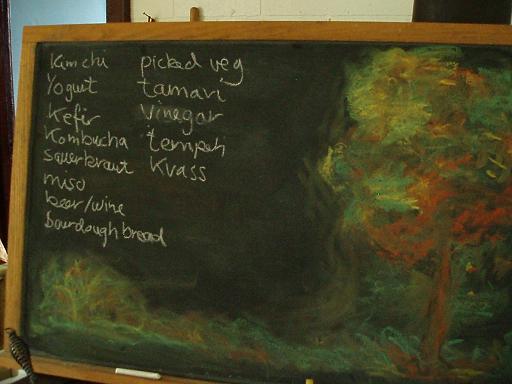 Kimchi
Yogurt
Kefir
Kombucha
Sauerkraut
miso
beer/wine
Sourdough bread
picked veg
tamari
vinegar
tempeh
Kvass